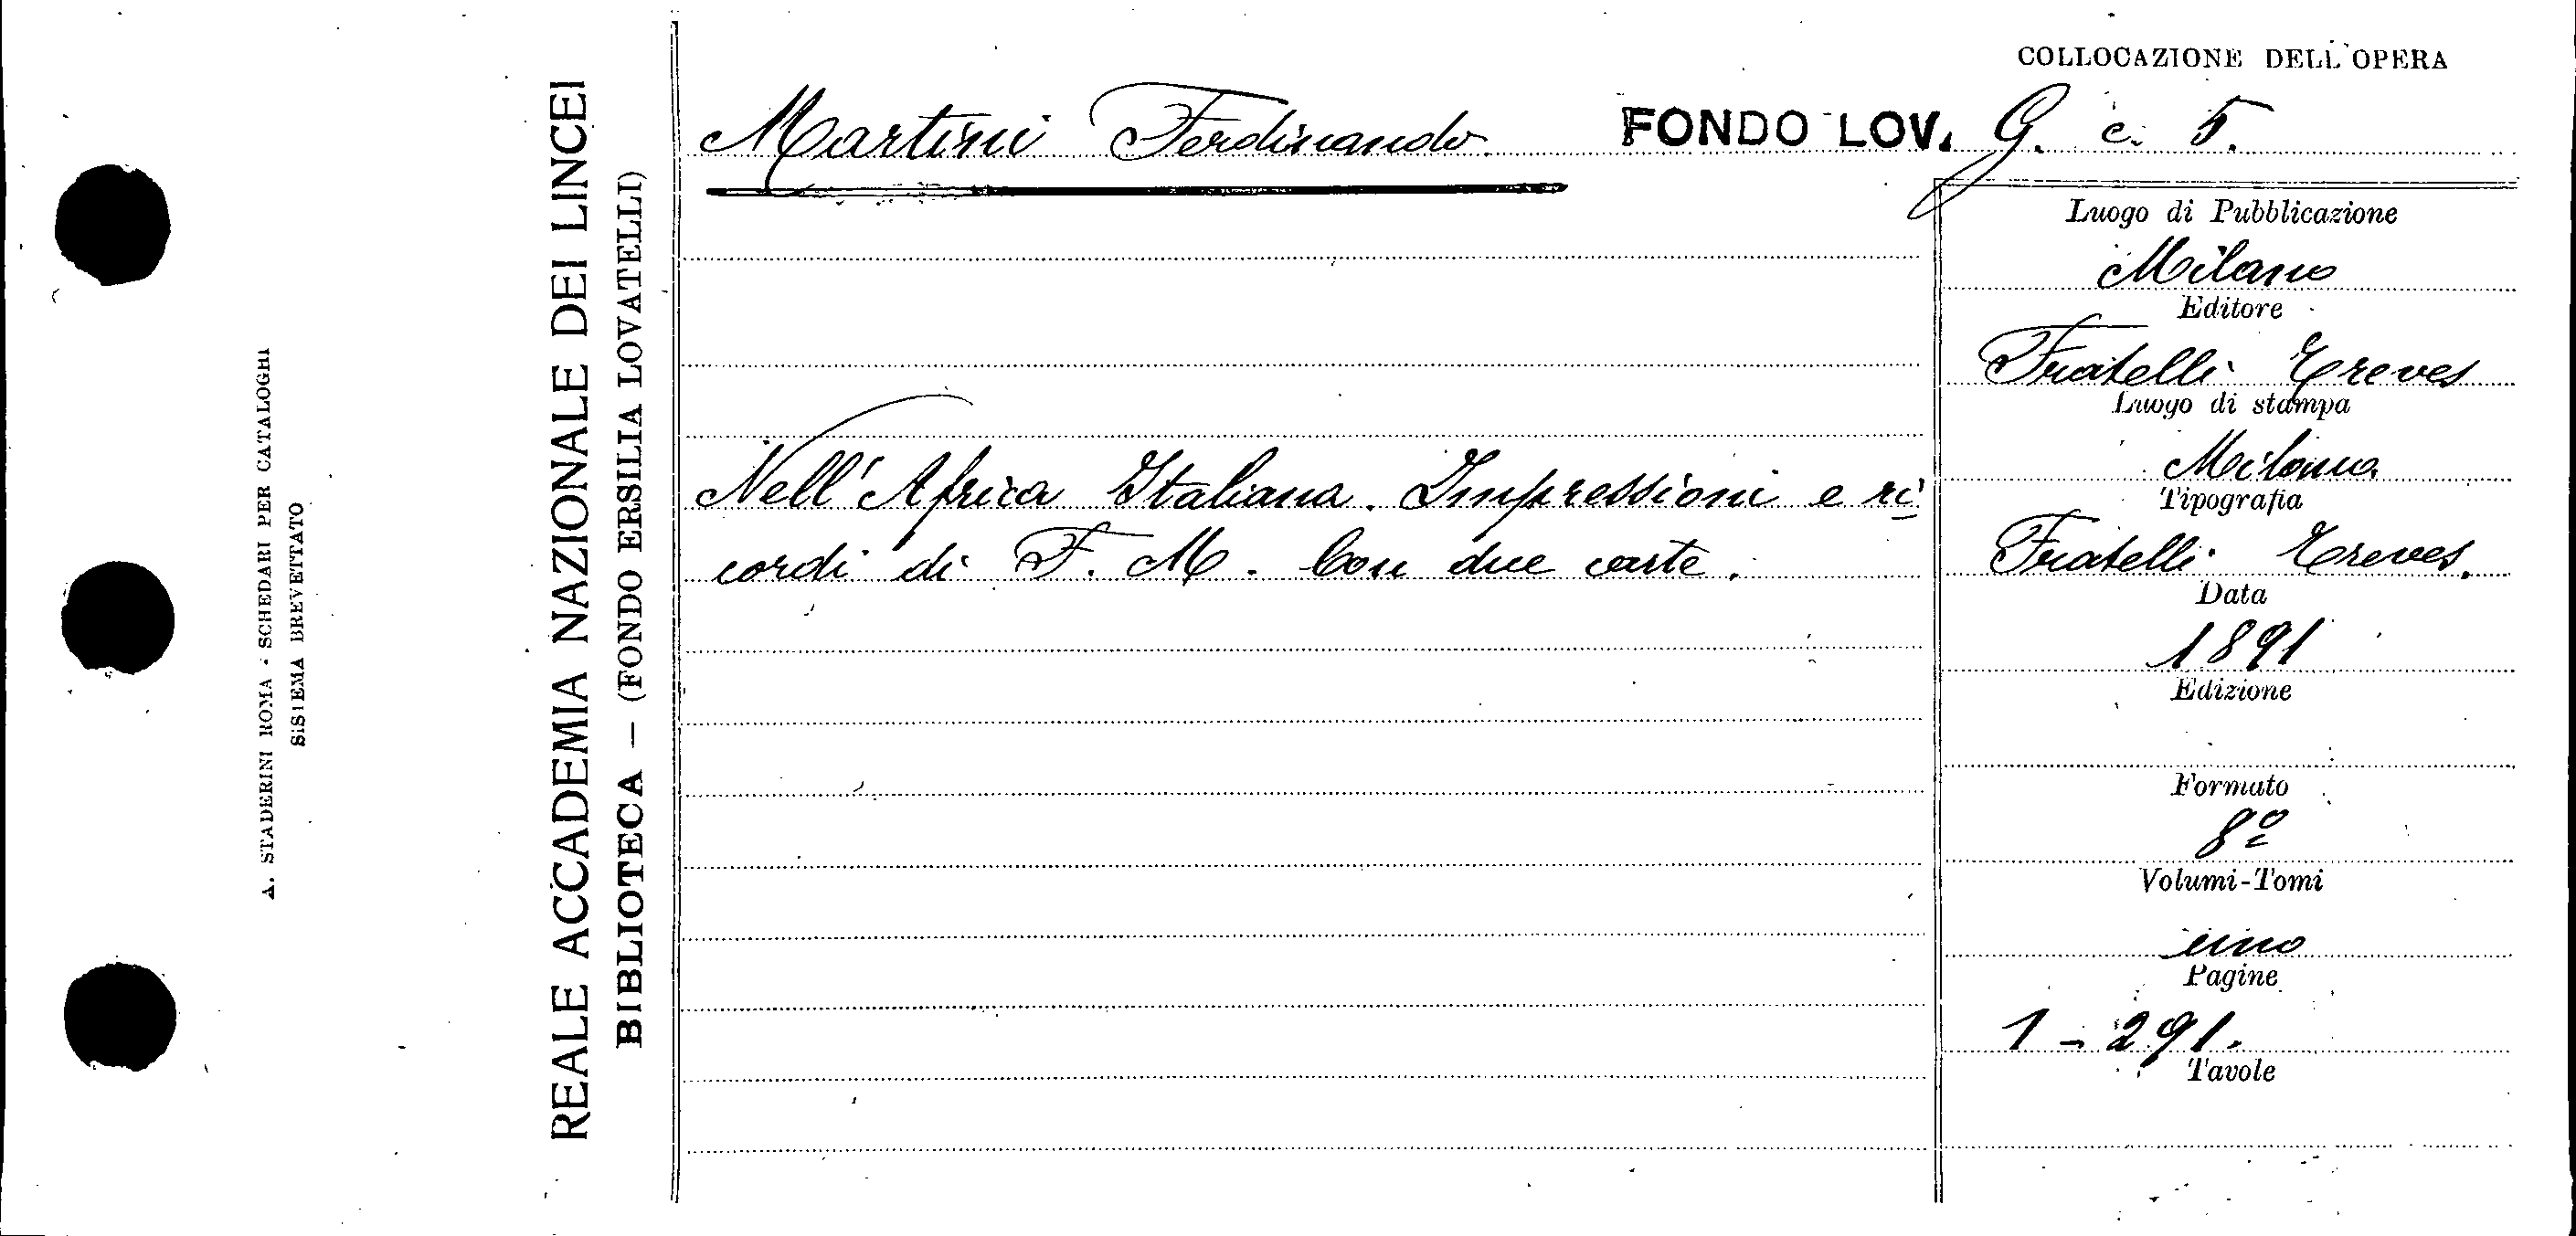 A. STADERINI ROMA - SCHEDARI PER CATALOGHI
SISTEMA BREVETTATO
REALE ACCADEMIA NAZIONALE DEI LINCEI
BIBLIOTECA — (FONDO ERSILIA LOVATELLI)
COLLOCAZIONE DELL'OPERA
Martini Ferdinando FONDO LOV. G. c. 5.
Nell'Africa Italiana. Impressioni e ri
cordi di F. M. Con due carte.
Luogo di Pubblicazione
Milano
Editore
Fratelli Treves
Luogo di stampa
Milano
Tipografia
Fratelli Treves.
Data
1891
Edizione
Formato
8º
Volumi-Tomi
uno
Pagine
1-291.
Tavole